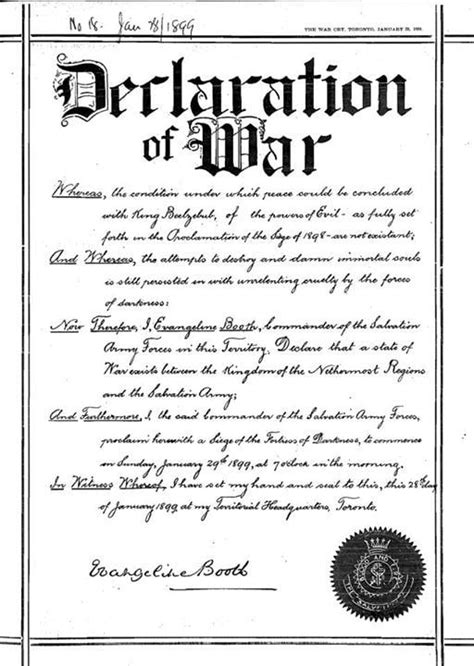 No 18. Jan 28/1899
THE WAR CRY, TORONTO, JANUARY 28, 1899.
Declaration
of War
Whereas, the condition under which peace could be concluded
with King Beelzebub, of the powers of Evil - as fully set
forth in the Proclamation of the Siege of 1898 - are not existant;
And Whereas, the attempts to destroy and damn immortal souls
is still persisted in with unrelenting cruelty by the forces
of darkness:
Now Therefore, I, Evangeline Booth, Commander of the Salvation
Army Forces in this Territory, Declare that a state of
War exists between the Kingdom of the Nethermost Regions
and the Salvation Army;
And Furthermore, I, the said Commander of the Salvation Army Forces,
proclaim herewith a Siege of the Fortress of Darkness, to commence
on Sunday, January 29th 1899, at 7 o'clock in the morning.
In Witness Whereof, I have set my hand and seal to this, this 28th day
of January 1899, at my Territorial Headquarters, Toronto.
Evangeline Booth
BLOOD AND